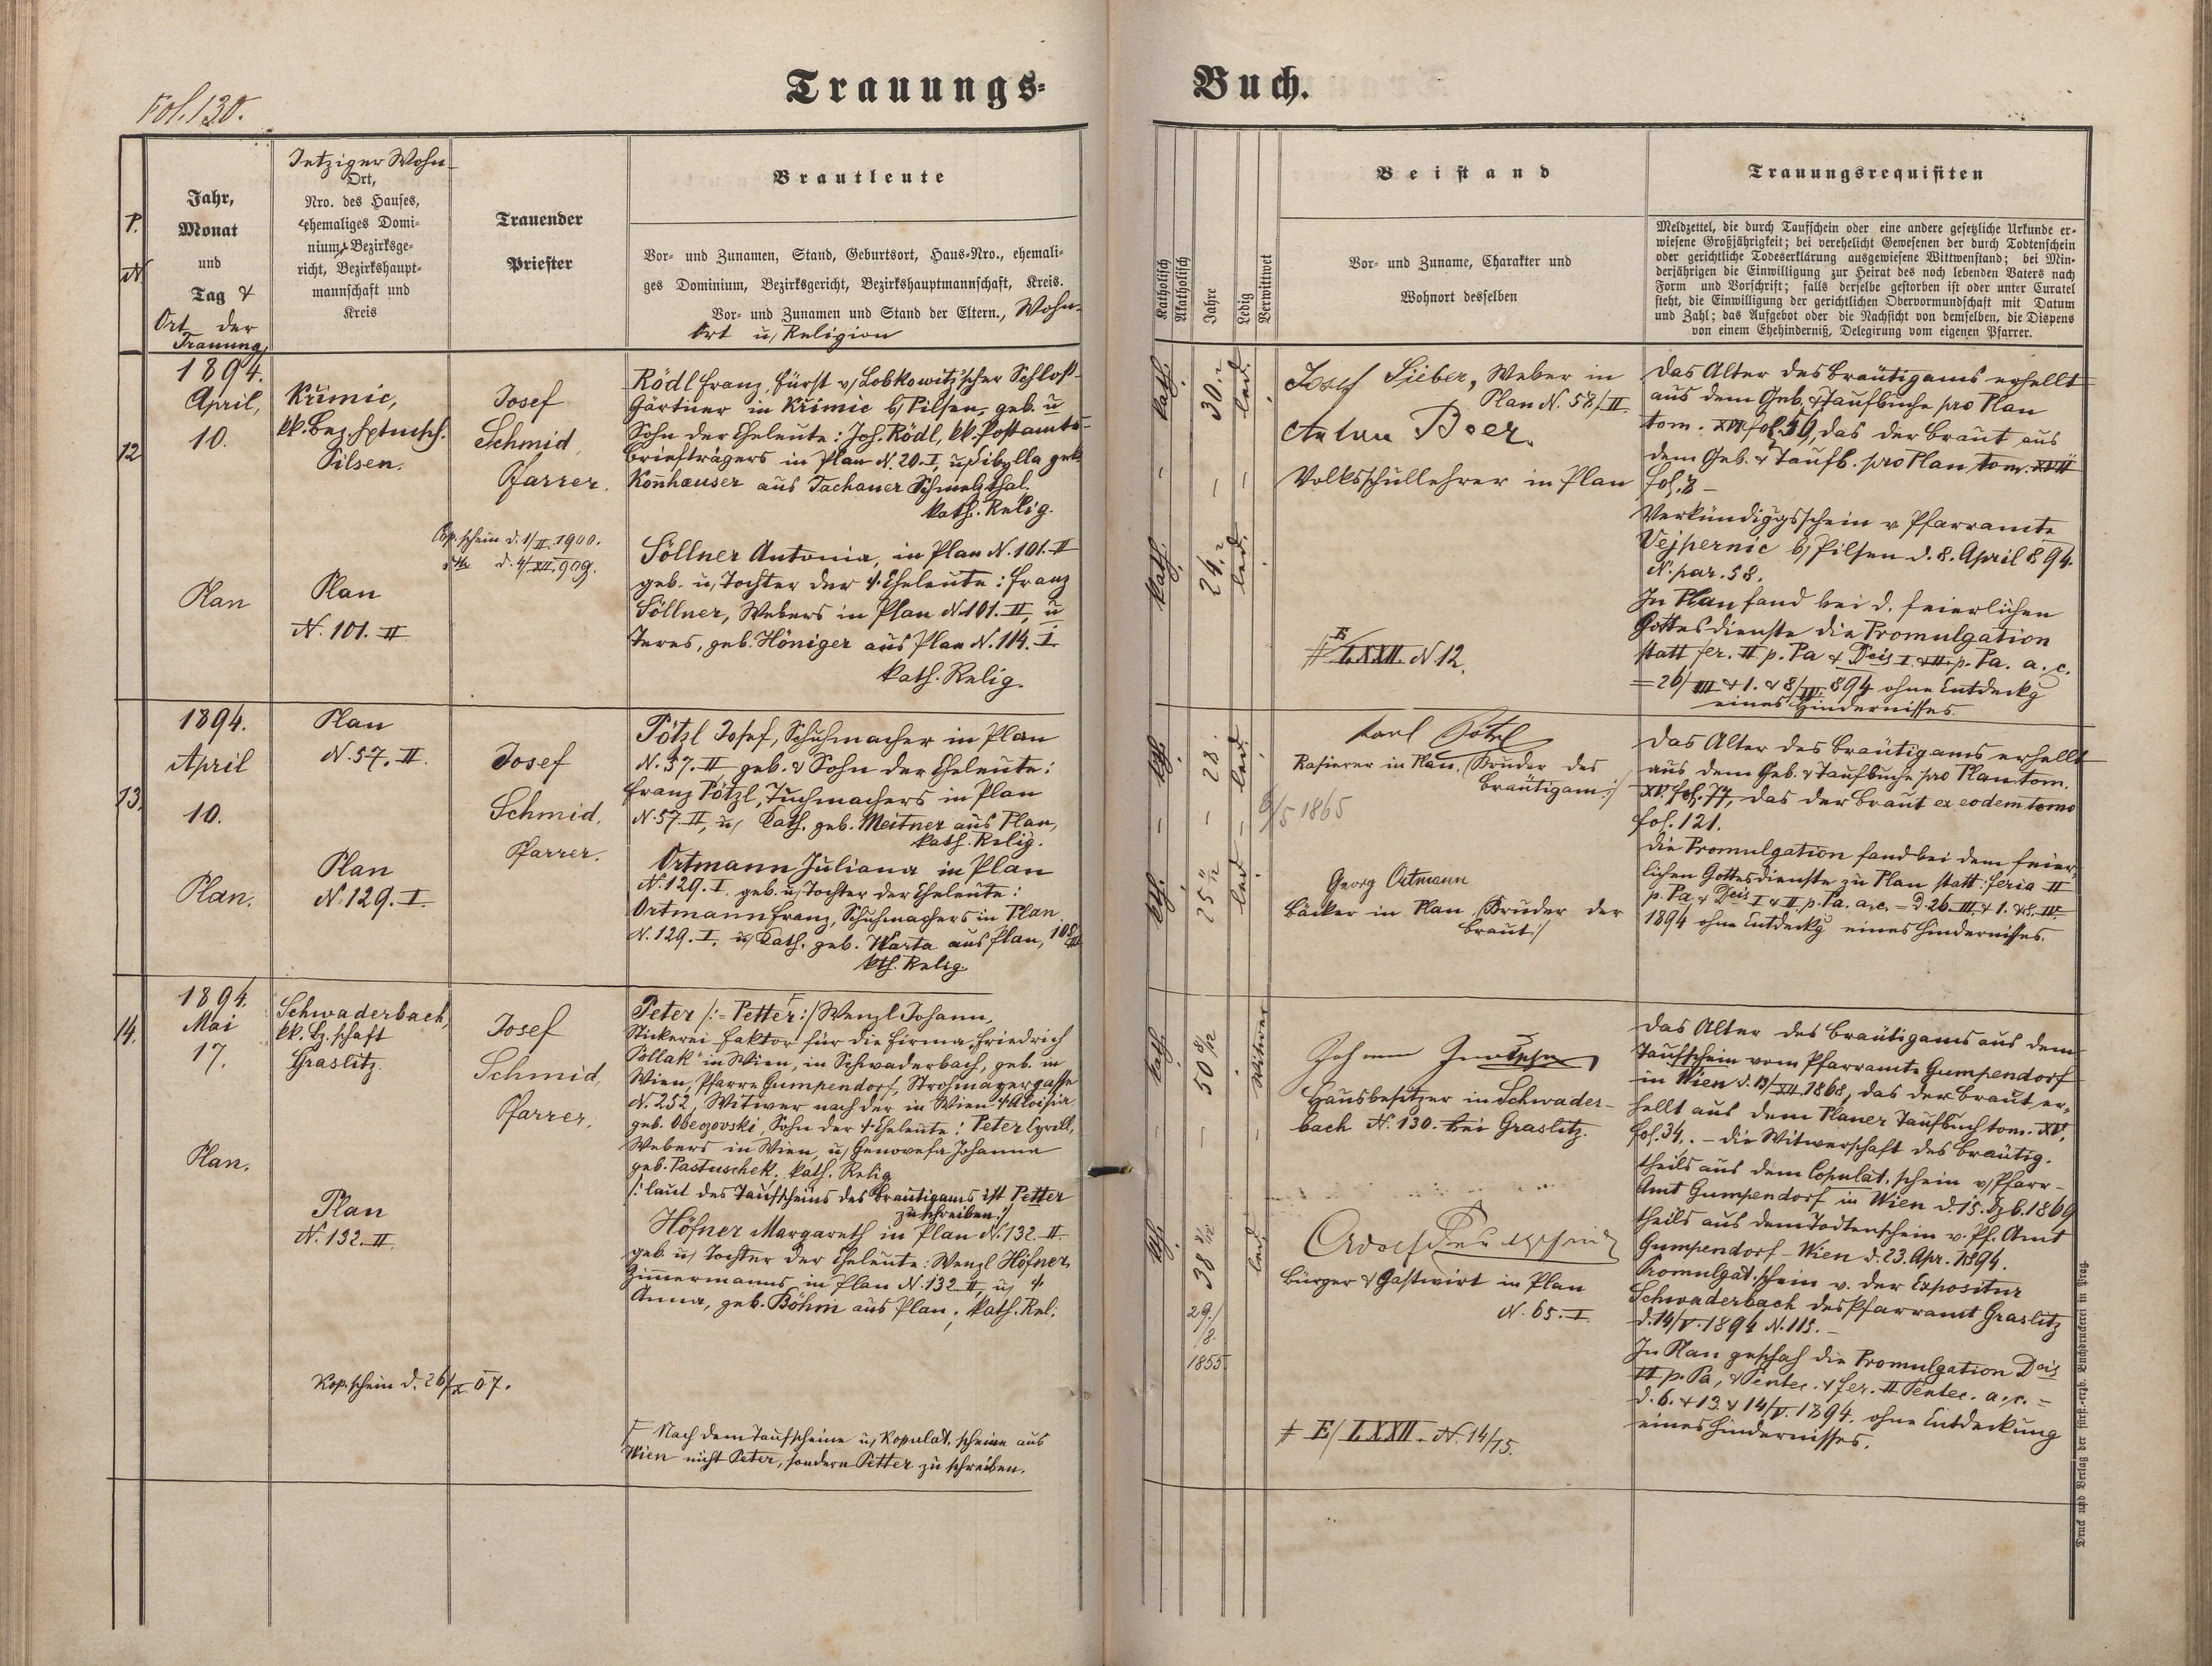 Fol. 130.
Trauungs-
Buch.
P.
N.
Jahr,
Monat
und
Tag &
Ort der
Trauung
Jetziger Wohn-
Ort,
Nro. des Hauses,
ehemaliges Domi-
nium, Bezirksge-
richt, Bezirkshaupt-
mannschaft und
Kreis
Trauender
Priester
Brautleute
Vor- und Zunamen, Stand, Geburtsort, Haus-Nro., ehemali-
ges Dominium, Bezirksgericht, Bezirkshauptmannschaft, Kreis.
Vor- und Zunamen und Stand der Eltern., Wohn-
Ort u. Religion
Katholisch
Akatholisch
Jahre
Ledig
Verwittwet
Beistand
Vor- und Zuname, Charakter und
Wohnort desselben
Trauungsrequisiten
Meldzettel, die durch Taufschein oder eine andere gesetzliche Urkunde er-
wiesene Großjährigkeit; bei verehelicht Gewesenen der durch Todtenschein
oder gerichtliche Todeserklärung ausgewiesene Wittwenstand; bei Min-
derjährigen die Einwilligung zur Heirat des noch lebenden Vaters nach
Form und Vorschrift; falls derselbe gestorben ist oder unter Curatel
steht, die Einwilligung der gerichtlichen Obervormundschaft mit Datum
und Zahl; das Aufgebot oder die Nachsicht von demselben, die Dispens
von einem Ehehinderniß, Delegirung vom eigenen Pfarrer.
12
1894.
April,
10.
Plan
Křimic,
kk. Bez. Hptmsch.
Pilsen.
Plan
N. 101. II
Josef
Schmid,
Pfarrer.
Cop. schein d. 1/II. 1900.
dtto d. 4/XII. 909.
Rödl Franz, Fürst v. Lobkowitz'scher Schloß-
Gärtner in Křimic b/ Pilsen, geb. u
Sohn der Eheleute: Joh. Rödl, kk. Postamts-
briefträgers in Plan N. 20. I, u. Sibylla geb.
Konhauser aus Tachauer Schmelzthal.
kath. Relig.
Söllner Antonia, in Plan N. 101. II
geb. u. Tochter der †. Eheleute: Franz
Söllner, Webers in Plan N. 101. II, u
Teres, geb. Höniger aus Plan N. 114. I.
kath. Relig.
kath.
30.
led.
kath.
24.
led.
Josef Sieber, Weber in
Plan N. 58/II.
Anton Beer.
Volksschullehrer in Plan
# E/LXXII. N 12.
Das Alter des Bräutigams erhellt
aus dem Geb. & Taufbuche pro Plan
tom. XVI fol. 59, das der Braut aus
dem Geb. & Taufb. pro Plan tom. XVII
fol. 8 -
Verkündiggsschein v. Pfarramte
Vejpernic b/ Pilsen d. 8. April 894.
N. par. 58.
In Plan fand bei d. feierlichen
Gottesdienste die Promulgation
statt fer. II p. Pa & Dcis I. & II. p. Pa. a. c.
= 26/III & 1. & 8/IV. 894 ohne Entdeckg
eines Hindernisses.
13.
1894.
April
10.
Plan.
Plan
N. 57. II.
Plan
N. 129. I.
Josef
Schmid,
Pfarrer.
Pötzl Josef, Schuhmacher in Plan
N. 57. II geb. & Sohn der Eheleute:
Franz Pötzl, Tuchmachers in Plan
N. 57. II, u. Kath. geb. Meitner aus Plan,
kath. Relig.
Ortmann Juliana in Plan
N. 129. I geb. u. Tochter der Eheleute:
Ortmann Franz, Schuhmachers in Plan
N. 129. I. u. Kath. geb. Warta aus Plan, 108
kth. Relig.
kth.
28.
led.
kth.
25
led
Karl Pötzl
Rasierer in Plan, /:Bruder des
Bräutigams:/
6/5 1865
Georg Ortmann
Bäcker in Plan /:Bruder der
Braut:/
Das Alter des Bräutigams erhellt
aus dem Geb. & Taufbuche pro Plan tom.
XV. fol. 77, das der Braut ex eodem tomo
fol. 121.
Die Promulgation fand bei dem feier-
lichen Gottesdienste zu Plan statt: feria II
p. Pa, & Dcis I & II p. Pa. a. c. = d. 26. III. & 1. & 8. IV.
1894 ohne Entdeckg eines Hindernisses.
14.
1894.
Mai
17.
Plan.
Schwaderbach,
kk. Bz. schaft
Graslitz.
Plan
N. 132. II.
Kop. schein d. 26/X. 07.
Josef
Schmid,
Pfarrer.
Peter /:= Petter:/ Wenzl Johann,
Stickerei Faktor für die Firma „Friedrich
Pollak" in Wien, in Schwaderbach, geb. in
Wien, Pfarre Gumpendorf, Stroßmayergasse
N. 252, Witwer nach der in Wien † Aloisia
geb. Obegovski, Sohn der † Eheleute: Peter Cyrill,
Webers in Wien, u. Genovefa Johanna
geb. Pastuschek, kath. Relig
/: laut des Taufscheins des Bräutigams ist Petter
zu schreiben:/
Höfner Margareth in Plan N. 132. II.
geb. u. Tochter der Eheleute: Wenzl Höfner,
Zimmermanns in Plan N. 132. II, u. †
Anna, geb. Böhm aus Plan; kath. Rel.
Nach dem Taufscheine u. Kopulat. scheine aus
Wien nicht Peter, sondern Petter zu schreiben.
kath.
50
Witwer
kth.
38
led
29./
8.
1855.
Johann
Hausbesitzer in Schwader-
bach N. 130. bei Graslitz.
Adolf
Bürger & Gastwirt in Plan
N. 65. I.
# E/LXXII. N. 14/15.
Das Alter des Bräutigams aus dem
Taufschein vom Pfarramte Gumpendorf
in Wien d. 13/XII. 1868, das der Braut er-
hellt aus dem Planer Taufbuch tom. XV.
fol. 34. - die Witwerschaft des Bräutig.
theils aus dem Copulat. schein v. Pfarr-
Amt Gumpendorf in Wien d. 15. Dzb. 1869
theils aus dem Todtenschein v. Pf. Amt
Gumpendorf - Wien d. 23. Apr. 1894.
Promulgat. schein v. der Expositur
Schwaderbach des Pfarramt Graslitz
d. 14/V. 1894 N. 115. -
In Plan geschah die Promulgation Dcis
VI p. Pa, & Pentec. & fer. II Pentec. a. c. =
d. 6. & 13. & 14/V. 1894. ohne Entdeckung
eines Hindernisses.
Druck und Verlag der fürst.-erzb. Buchdruckerei in Prag.